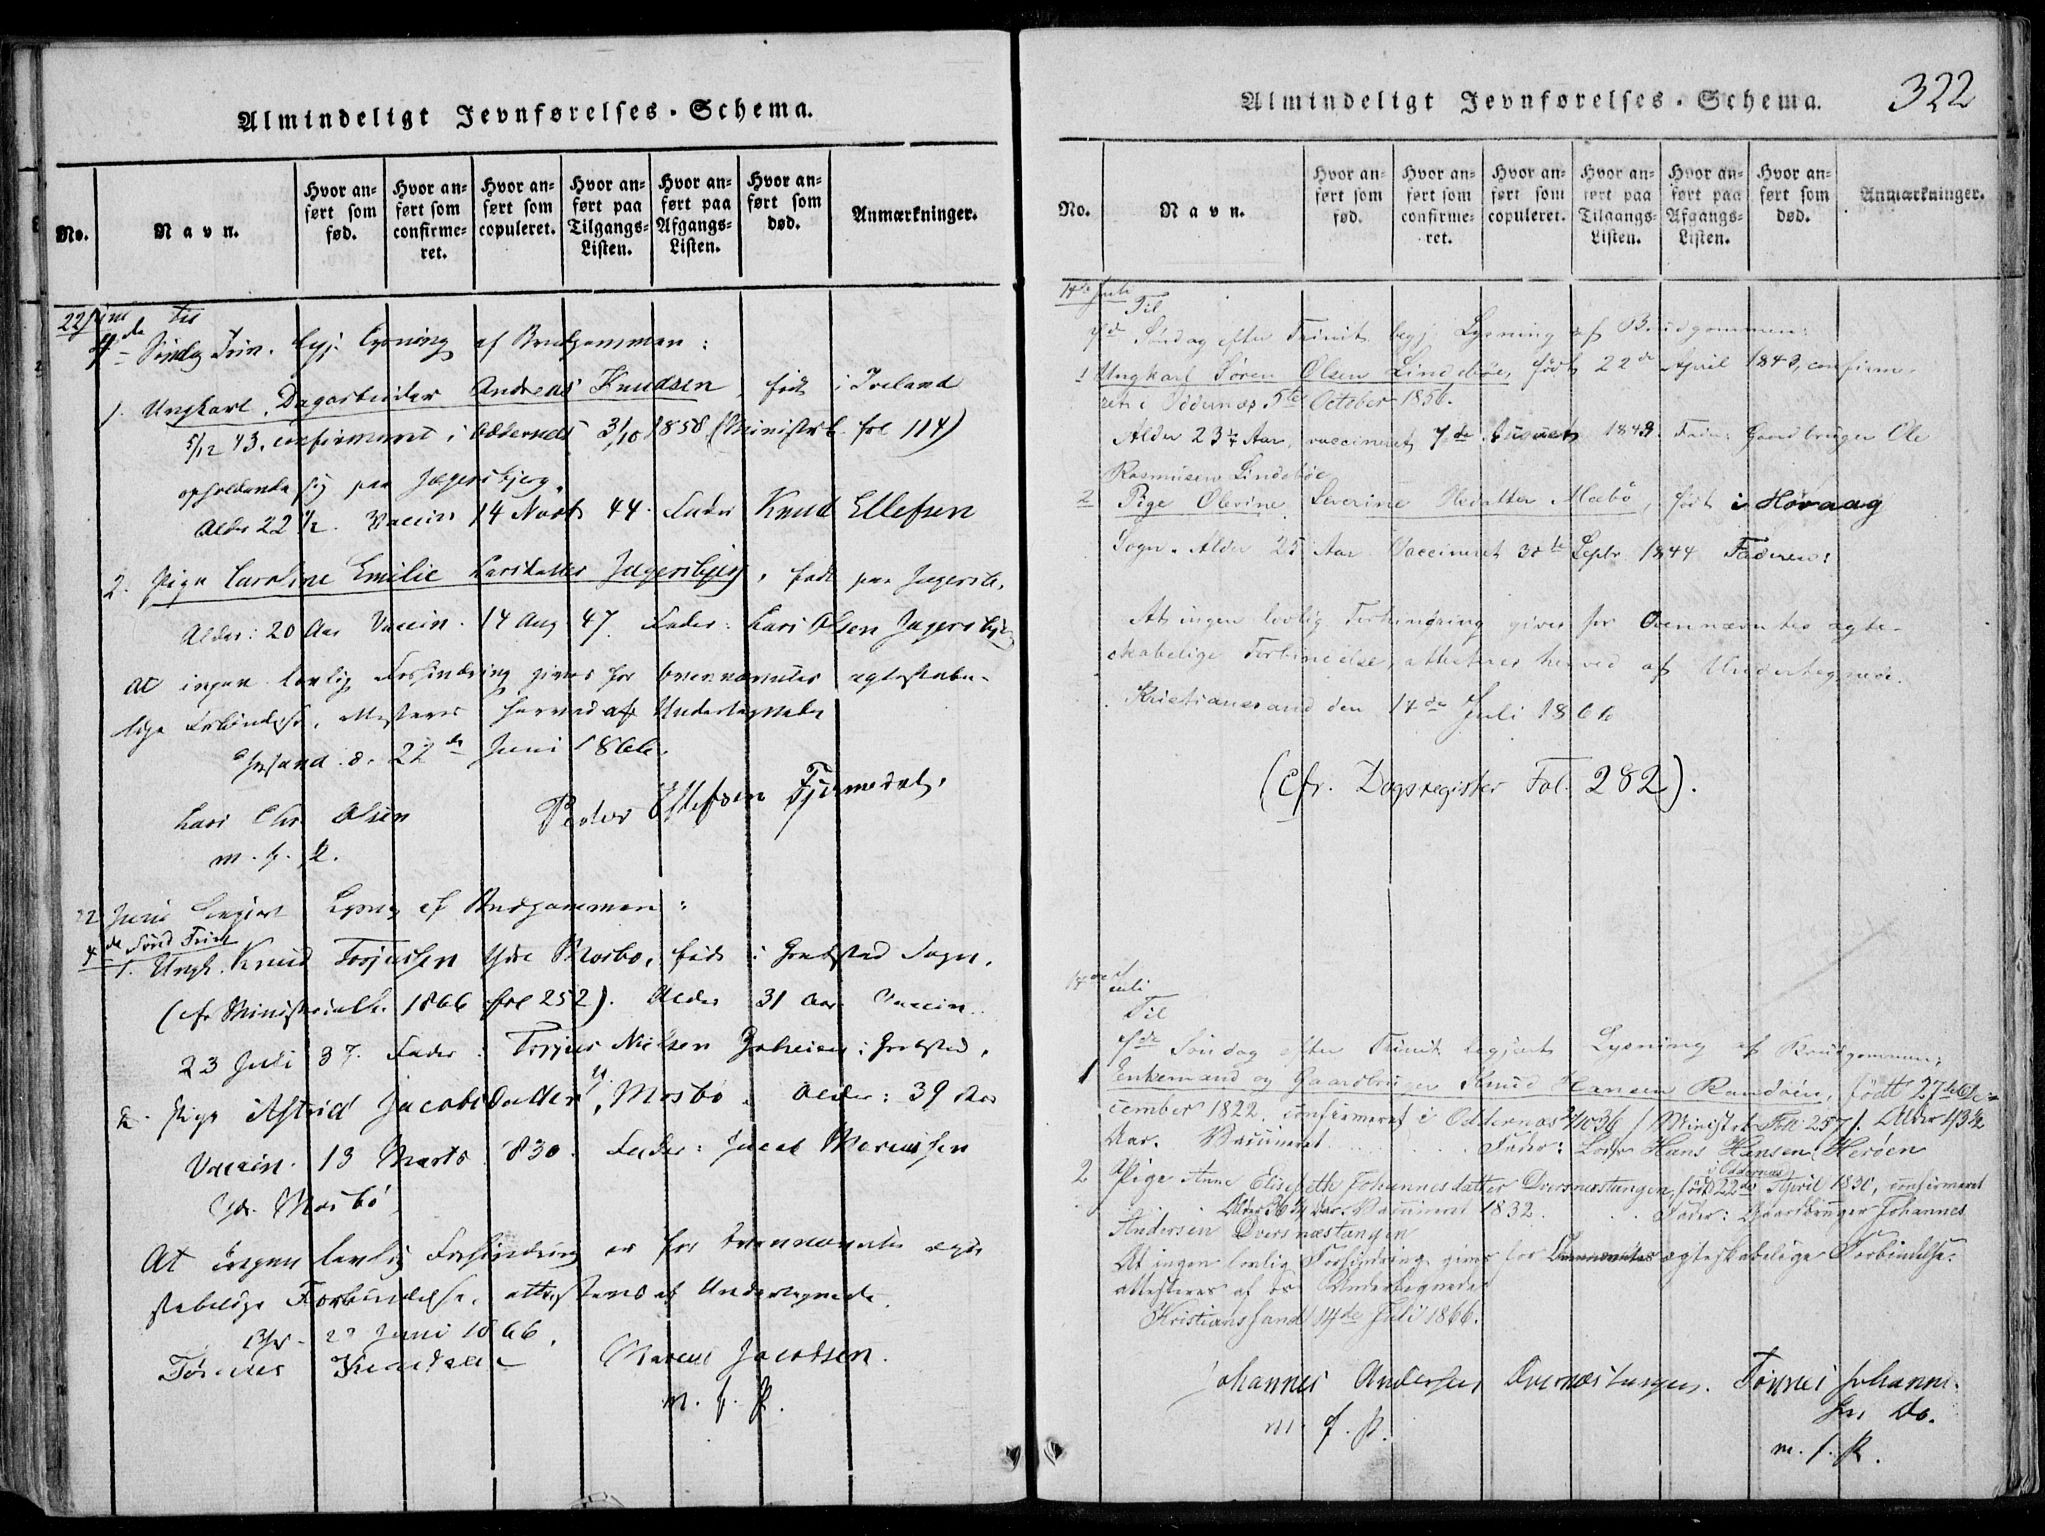 Almindeligt Jevnførelses-Schema.
No.
Navn.
Hvor anført som fød.
Hvor anført som confirmeret.
Hvor anført som copuleret.
Hvor anført paa Tilgangs-Listen.
Hvor anført paa Afgangs-Listen.
Hvor anført som død.
Anmærkninger.
22 Juni
Til
4de Søndag Trin. begj. Lysning af Brudgommen:
1. Ungkarl, Dagarbeider Andreas Knudsen, født i Iveland
5/12 43. confirmeret i Oddernes 3/10 1858 (Ministb. fol 114)
opholdende sig paa Jægersbjerg.
Alder 22 1/2. Vaccin 14 44. Fader Knud Ellefsen
2. Pige Caroline Emilie Larsdatter Jægersbjerg, født paa Jægersb.
Alder: 20 Aar Vaccin. 14 Aug 47. Fader: Lars Olsen Jægersbjerg
At ingen lovlig Forhindring gives for ovennævntes ægteskabe-
lige Forbindelse, attesteres herved af Undertegnede
Chrsand d. 22de Juni 1866.
Lars Chr. Olsen
m. f. P.
Peder Ellefsen Fjermedal.
22 Juni begjert Lysning af Brudgommen:
4de Sønd Trin
1. Ungk. Knud Torjussen Mosbø, født i Grebsted Sogn.
(cfr Ministerialb. 1866 fol 252). Alder 31 Aar Vaccin.
23 Juli 37. Fader: Torjus Nielsen i Grebsted.
2. Pige Astrid Jacobsdatter Mosbø. Alder: 39 Aar
Vaccin. 13 Marts 830. Fader: Jacob Marcussen
Mosbø
At ingen lovlig Forhindring er for ovennævntes ægte
skabelige Forbindelse, attesteres af Undertegnede.
Chrs. 22 Juni 1866.
Marcus Jacobsen.
m. f. P.
322
Almindeligt Jevnførelses-Schema.
No.
Navn.
Hvor anført som fød.
Hvor anført som confirmeret.
Hvor anført som copuleret.
Hvor anført paa Tilgangs-Listen.
Hvor anført paa Afgangs-Listen.
Hvor anført som død.
Anmærkninger.
14de Juli
Til
7de Søndag efter Trinit. begj. Lysning af Brudgommen:
1 Ungkarl Søren Olsen Lindebøe, født 22de April 1843, confirme-
ret i Oddernæs 5te October 1856.
Alder 23 1/4 Aar, vaccineret 7de August 1843. Fader: Gaardbruger Ole
Rasmusen Lindebøe
2 Pige Olevine Severine Mæbø, født i Høvaag
Sogn. Alder 25 Aar Vaccineret Septr. 1844 Faderen:
At ingen lovlig Forhindring gives for Ovennævntes ægte-
skabelige Forbindelse, attesteres herved af Undertegnede.
Kristianssand den 14de Juli 1866
(cfr. Dagsregister Fol. 282).
14de Juli
Til
7de Søndag efter Trinit. begjert Lysning af Brudgommen:
1 Enkemand og Gaardbruger Knud Hansen Randøen, født 27de De-
cember 1822. confirmeret i Oddernæs 2/10 36 (Ministb. Fol. 257). Alder 43 1/2
Aar. Vaccineret Fader: Lods Hans Hansen Herøen
2 Pige Anne Elisabeth Johannesdatter Dversnæstangen, født i Oddernæs 22de April 1830, confirmeret
Alder 36 1/4 Aar. Vaccineret 1832. Fader: Gaardbruger Johannes
Andersen Dversnæstangen
At ingen lovlig Forhindring gives for ægteskabelige Forbindelse.
attesteres af os Undertegnede
Kristianssand 14de Juli 1866.
Johannes Andersen Dversnæstangen.
m. f. P.
Tønnes Johanne-
sen do.
m. f. P.